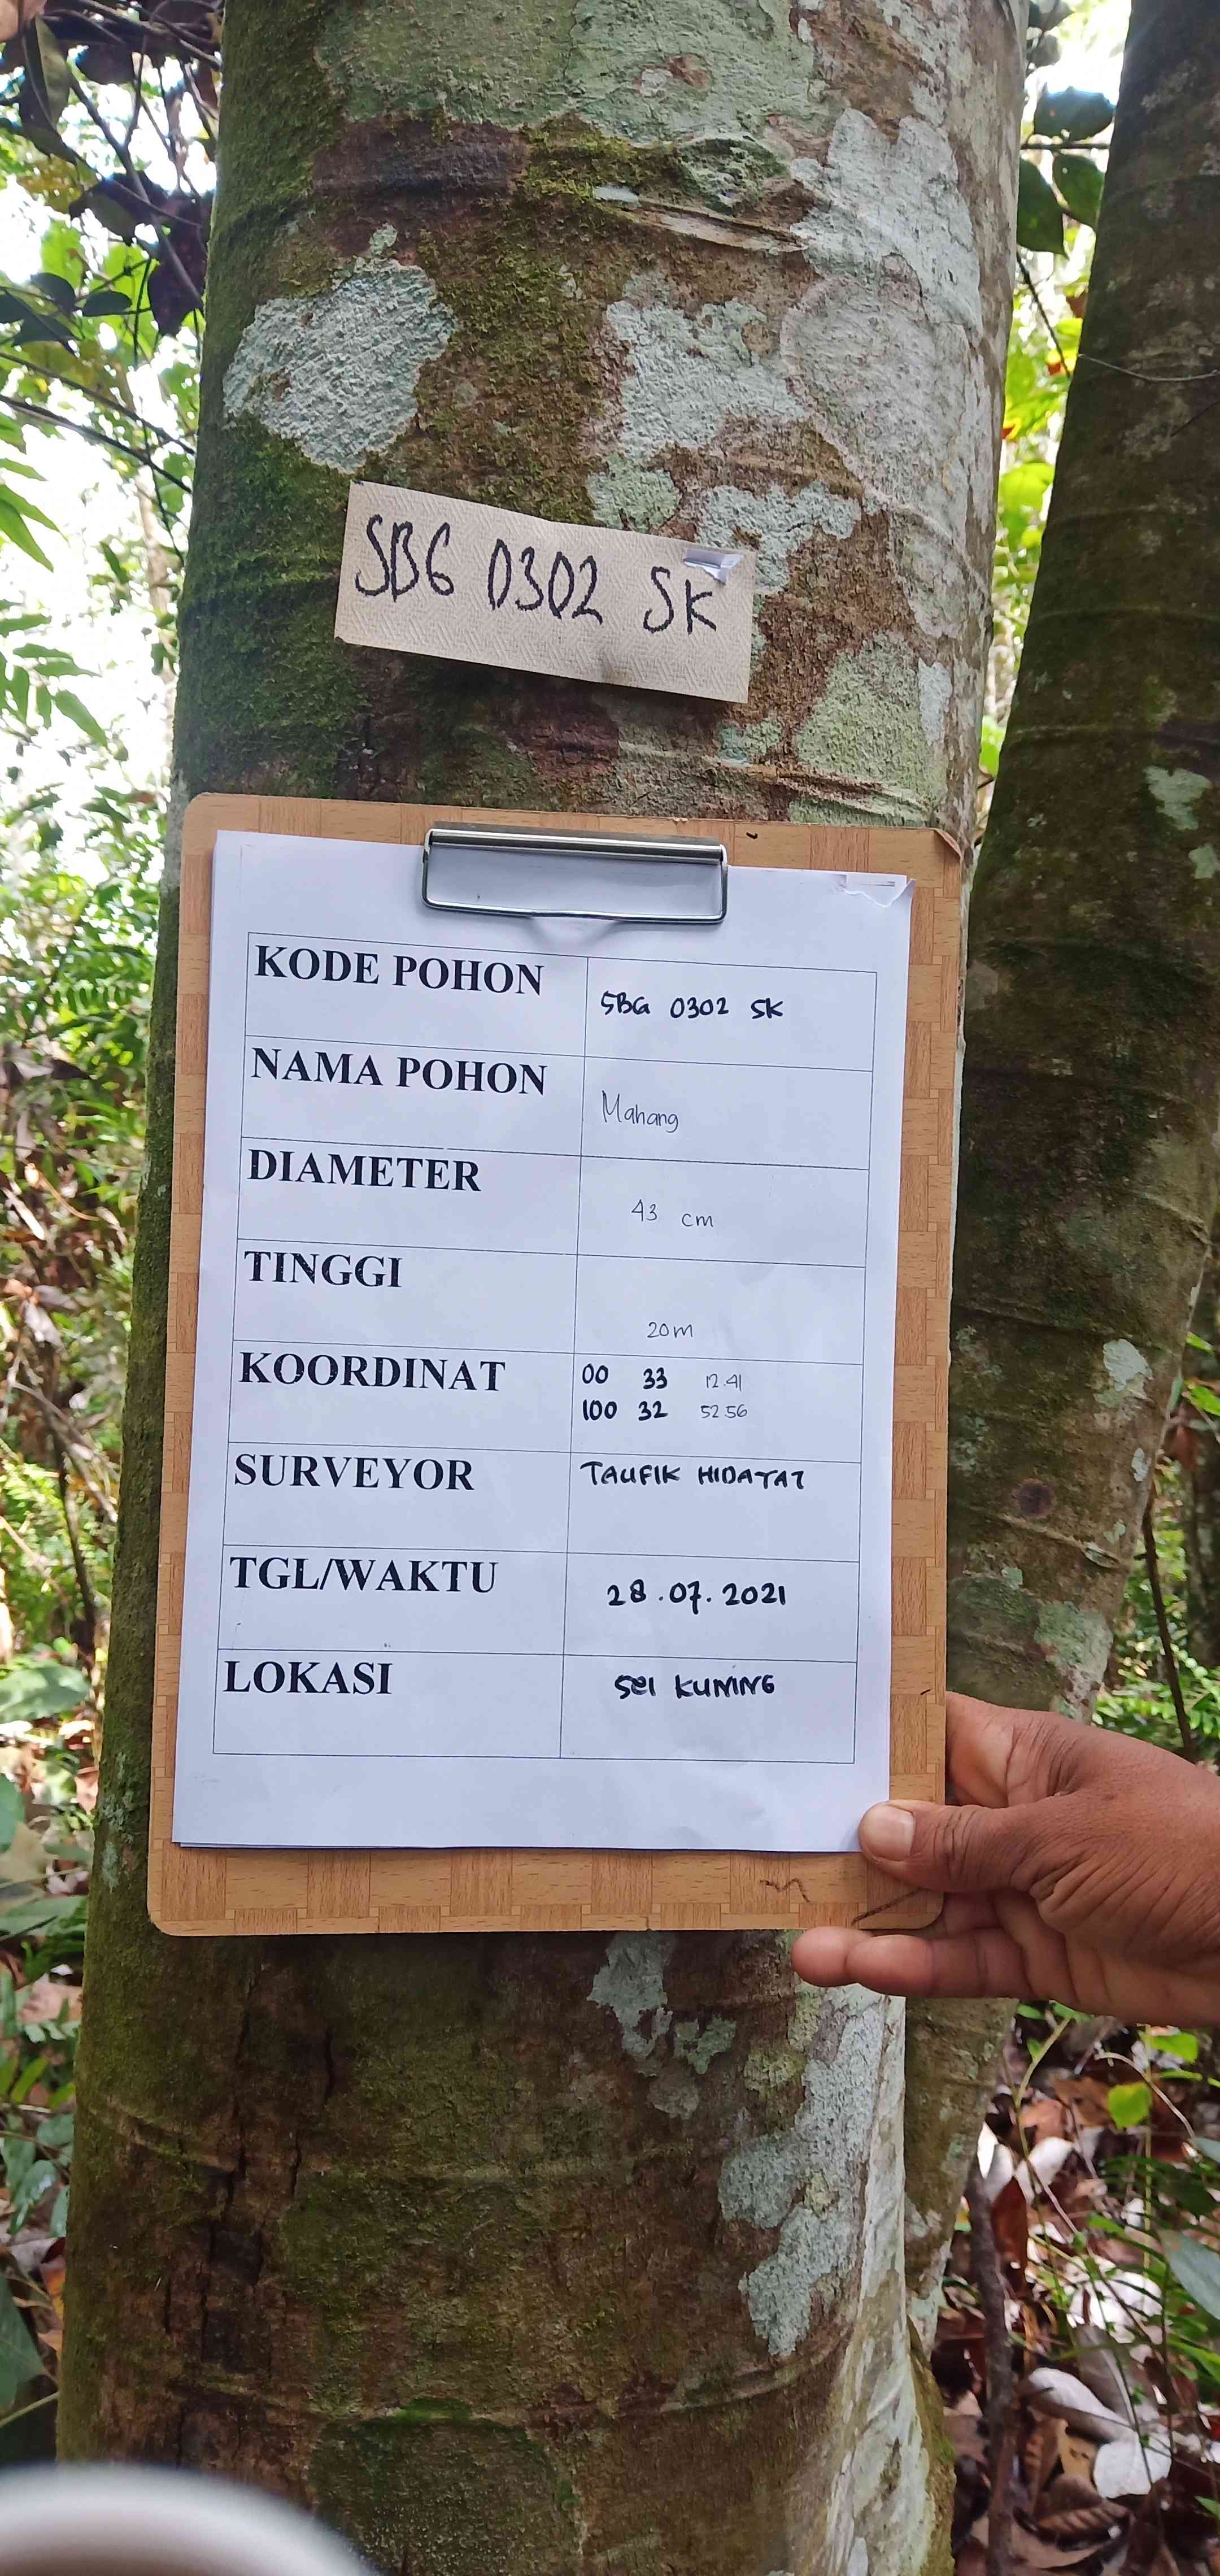 SBG 0302 SK
KODE POHON
SBG 0302 SK
NAMA POHON
Mahang
DIAMETER
43 cm
TINGGI
20 m
KOORDINAT
00 33 12.41
100 32 52.56
SURVEYOR
TAUFIK HIDAYAT
TGL/WAKTU
28.07.2021
LOKASI
SEI KUNING